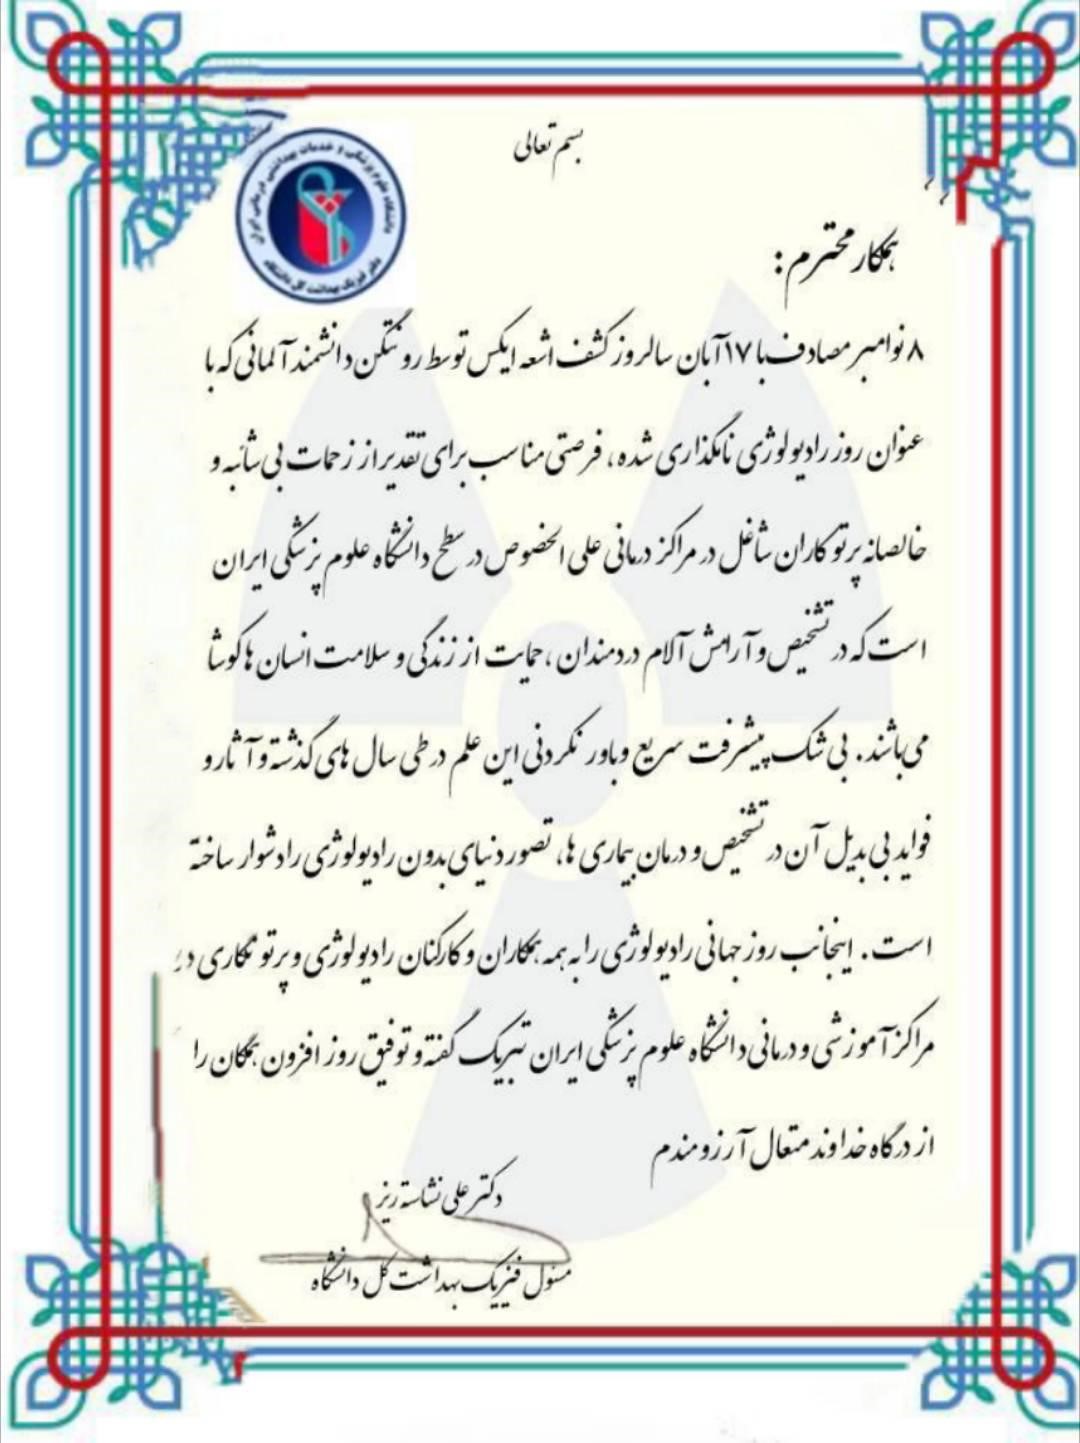 بسم تعالی
دانشگاه علوم پزشکی و خدمات بهداشتی درمانی ایران
دفتر فیزیک بهداشت کل دانشگاه
همکار محترم :
۸ نوامبر مصادف با ۱۷ آبان سالروز کشف اشعه ایکس توسط رونتگن دانشمند آلمانی که با
عنوان روز رادیولوژی نامگذاری شده، فرصتی مناسب برای تقدیر از زحمات بی شائبه و
خالصانه پرتوکاران شاغل در مراکز درمانی علی الخصوص در سطح دانشگاه علوم پزشکی ایران
است که در تشخیص و آرامش آلام دردمندان ، حمایت از زندگی و سلامت انسان ها کوشا
می باشند. بی شک پیشرفت سریع و باور نکردنی این علم در طی سال های گذشته و آثار و
فواید بی بدیل آن در تشخیص و درمان بیماری ها، تصور دنیای بدون رادیولوژی را دشوار ساخته
است. اینجانب روز جهانی رادیولوژی را به همه همکاران و کارکنان رادیولوژی و پرتونگاری در
مراکز آموزشی و درمانی دانشگاه علوم پزشکی ایران تبریک گفته و توفیق روز افزون همگان را
از درگاه خداوند متعال آرزومندم
دکتر علی نشاسته ریز
مسئول فیزیک بهداشت کل دانشگاه